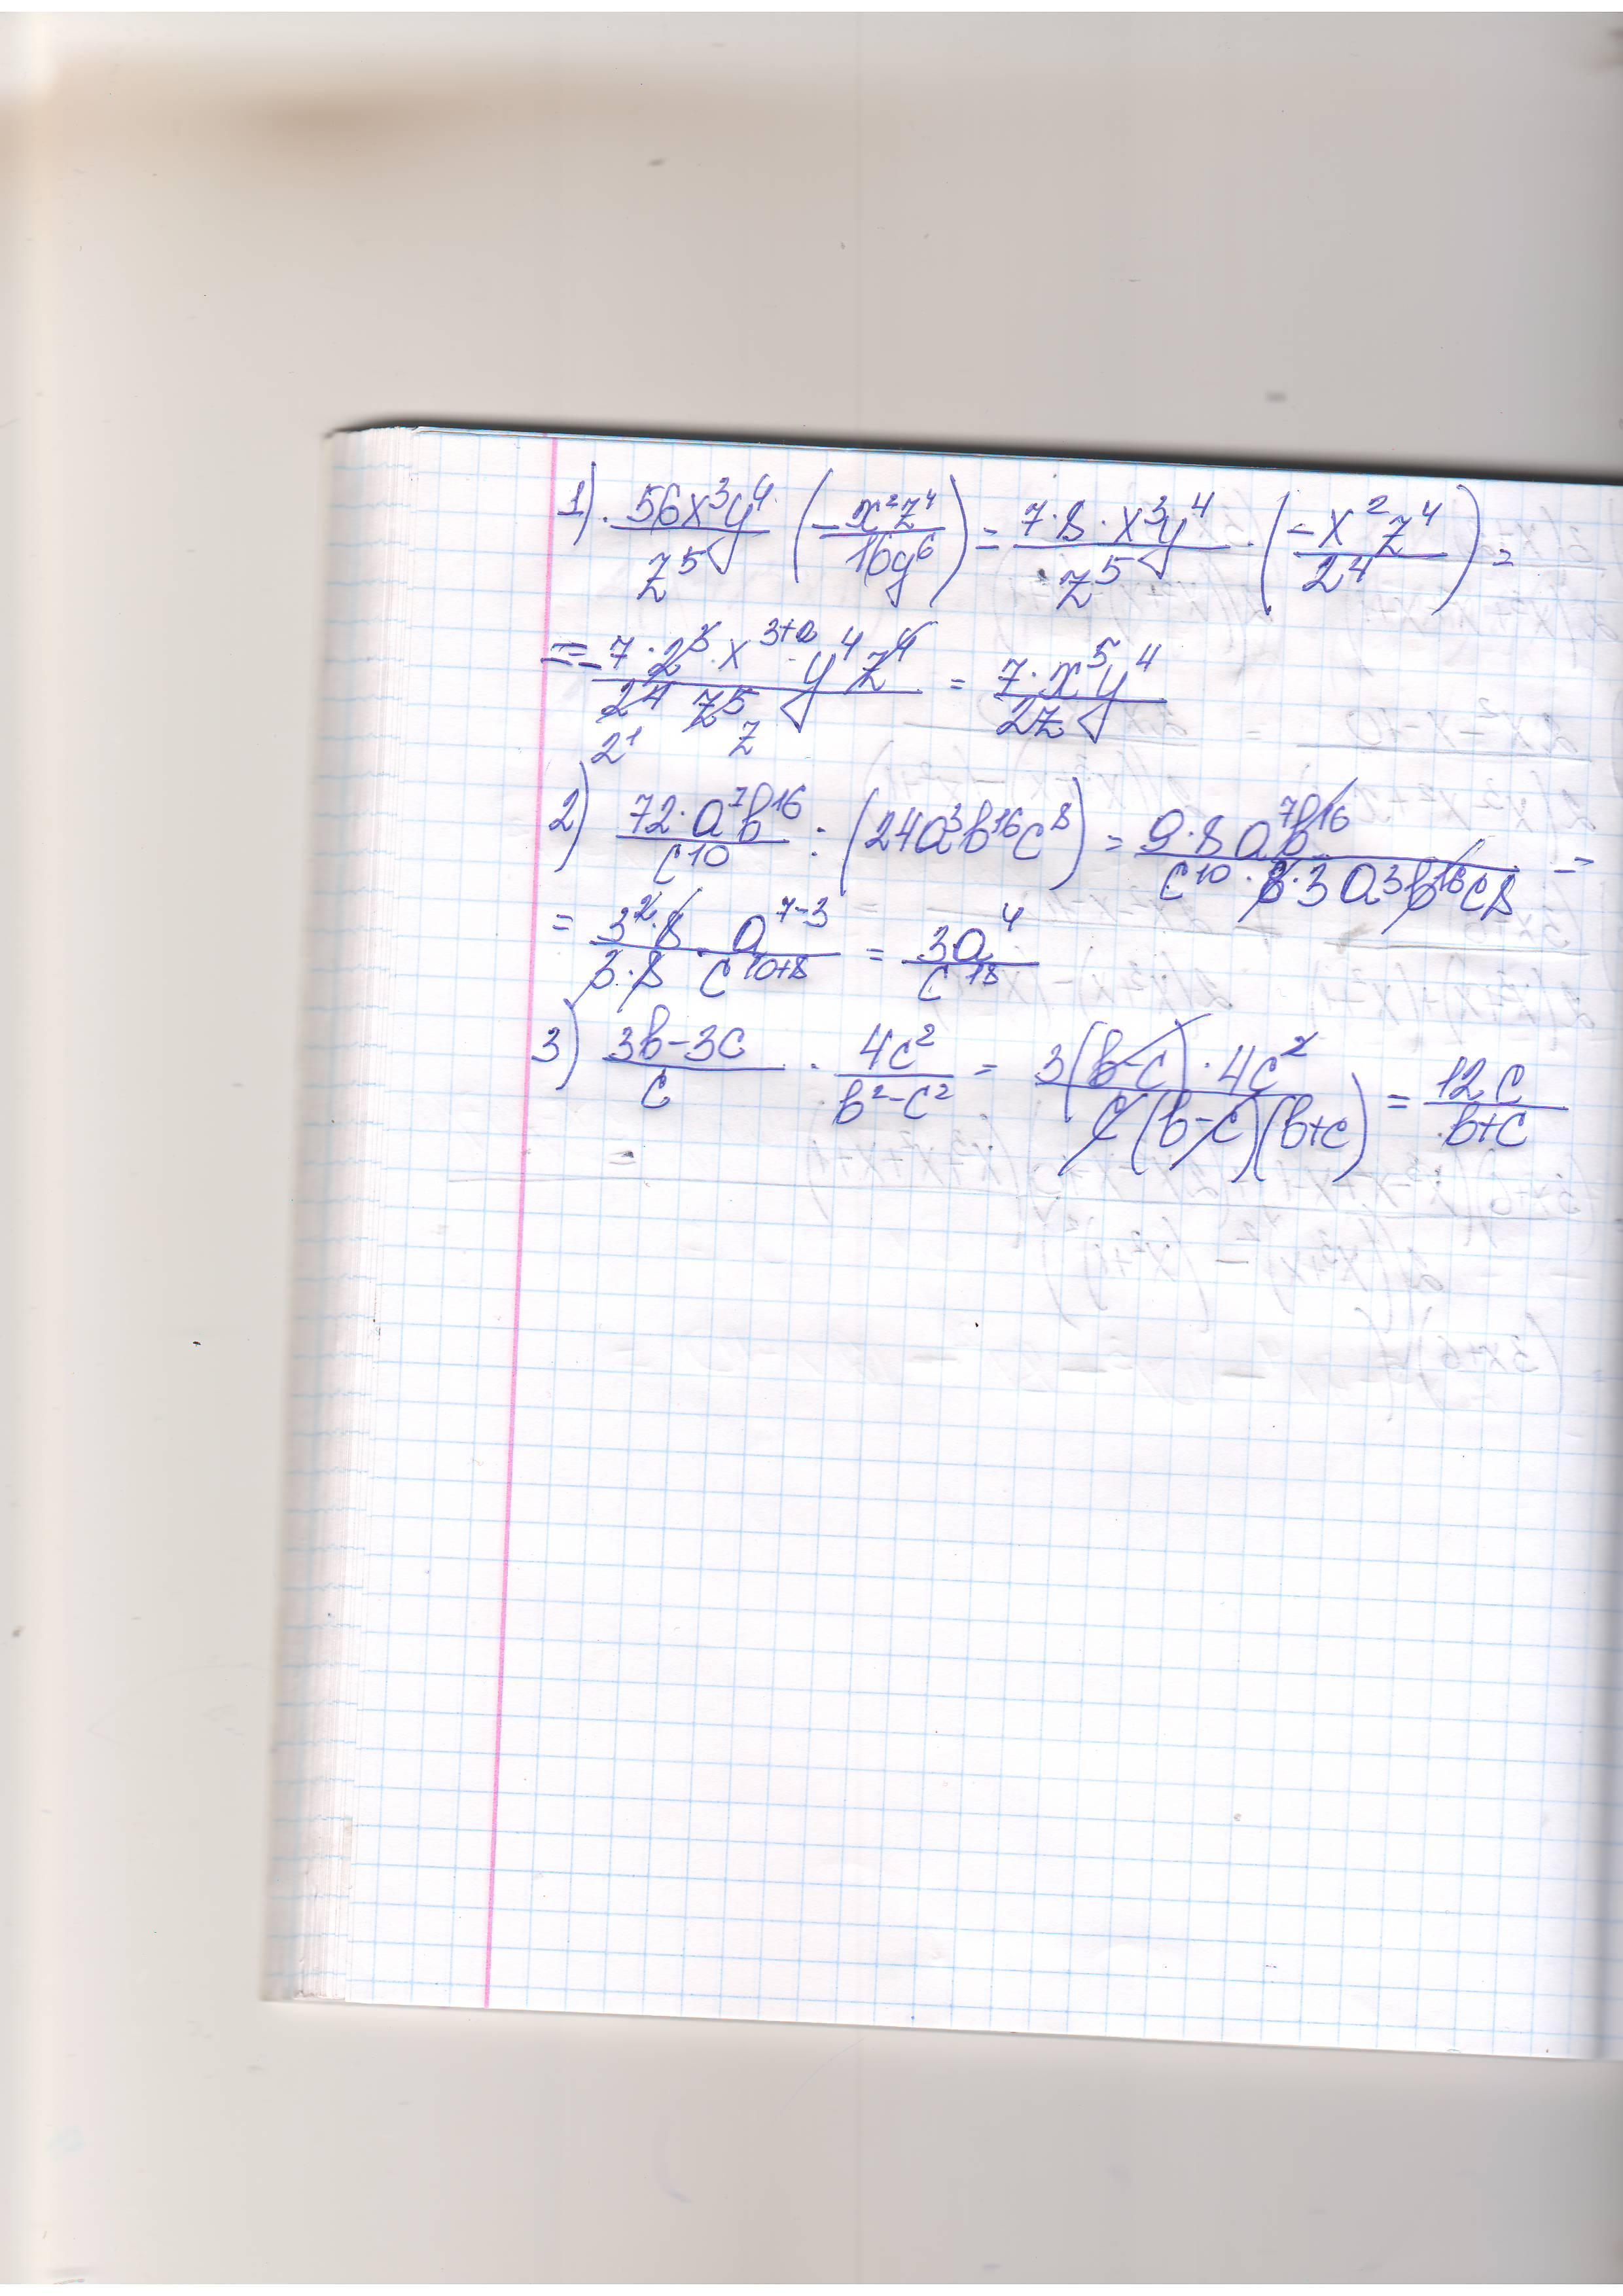 1) 56x³y⁴/z⁵ (-x²z⁴/16y⁶) = 7·8·x³y⁴/z⁵ · (-x²z⁴/2⁴) =
= -7·2³·x³⁺²·y⁴z⁴/2⁴z⁵ = 7·x⁵y⁴/2z
2¹ z
2) 72·a⁷b¹⁶/c¹⁰ : (24a³b¹⁶c⁸) = 9·8a⁷b¹⁶/c¹⁰·8·3a³b¹⁶c⁸ =
= 3²·8·a⁷⁻³/3·8·c¹⁰⁺⁸ = 3a⁴/c¹⁸
3) 3b-3c/c · 4c²/b²-c² = 3(b-c)·4c²/c(b-c)(b+c) = 12c/b+c